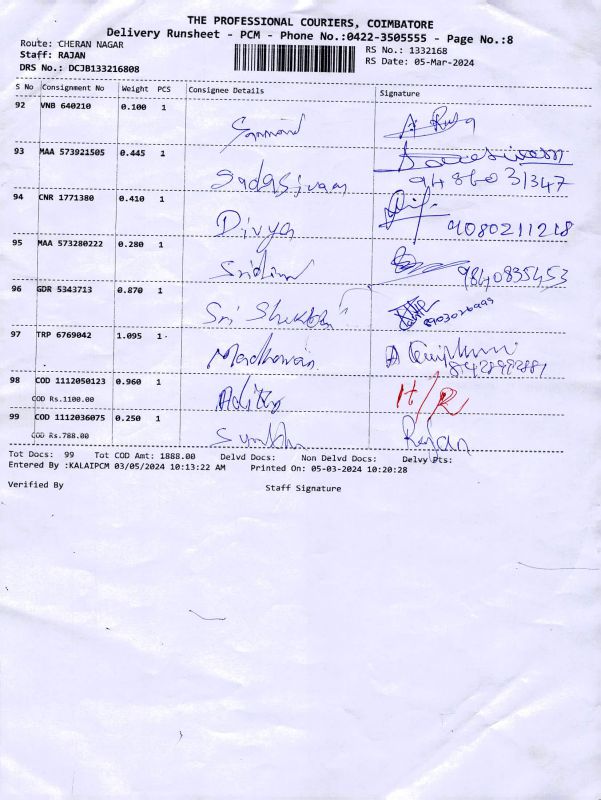 THE PROFESSIONAL COURIERS, COIMBATORE
Delivery Runsheet - PCM - Phone No.:0422-3505555 - Page No.:8
Route: CHERAN NAGAR
RS No.: 1332168
Staff: RAJAN
RS Date: 05-Mar-2024
DRS No.: DCJB133216808
S No Consignment No Weight PCS Consignee Details Signature
92 VNB 640210 0.100 1
93 MAA 573921505 0.445 1
Sadasivam
9486031347
94 CNR 1771380 0.410 1
Divya 9080211218
95 MAA 573280222 0.280 1
9840835453
96 GDR 5343713 0.870 1
Sri
97 TRP 6769042 1.095 1
Madhavan
98 COD 1112050123 0.960 1
COD Rs.1100.00
H/R
99 COD 1112036075 0.250 1
COD Rs.788.00
Rajan
Tot Docs: 99 Tot COD Amt: 1888.00 Delvd Docs: Non Delvd Docs: Delvy Pts:
Entered By :KALAIPCM 03/05/2024 10:13:22 AM Printed On: 05-03-2024 10:20:28
Verified By Staff Signature